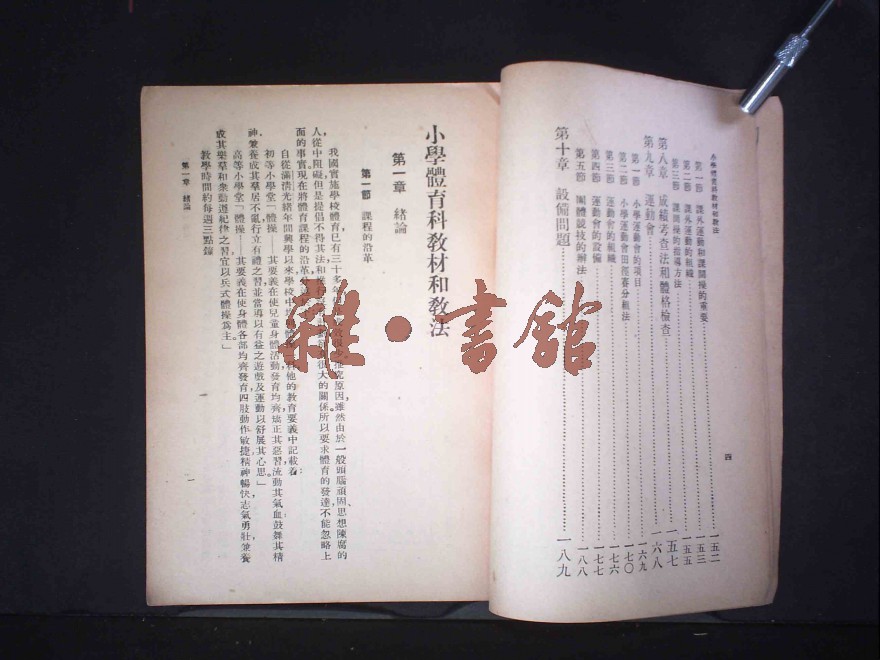 小學體育科教材和教法
四
第一節　課外運動和課間操的重要……一五二
第二節　課外運動的組織……一五三
第三節　課間操的指導方法……一五五
第八章　成績考查法和體格檢查……一五七
第九章　運動會……一六八
第一節　小學運動會的項目……一六九
第二節　小學運動會田徑賽分組法……一七〇
第三節　運動會的組織……一七六
第四節　運動會的設備……一七七
第五節　團體競技的辦法……一八八
第十章　設備問題……一八九
小學體育科教材和教法
第一章　緒論
第一節　課程的沿革
我國實施學校體育，已有三十多年　原因，雖然由於一般頭腦頑固，思想陳腐的
人，從中阻礙，但是提倡不得其法，和　很大的關係。所以要求體育的發達，不能忽略上
面的事實。現在將體育課程的沿革
自從滿清光緒年間興學以來，學校中　他的教育要義中記載着：
初等小學堂「體操——其要義在使兒童身體活動，發育均齊，矯正其惡習，流動其氣血，鼓舞其精
神，兼養成其羣居不亂，行立有禮之習；並當導以有益之遊戲及運動，以舒展其心思。」
高等小學堂「體操——其要義在使身體各部均齊發育，四肢動作敏捷，精神暢快，志氣勇壯，兼養
成其樂羣和衆動遵紀律之習；宜以兵式體操爲主。」
教學時間約每週三點鐘
第一章　緒論
一
雜·書館